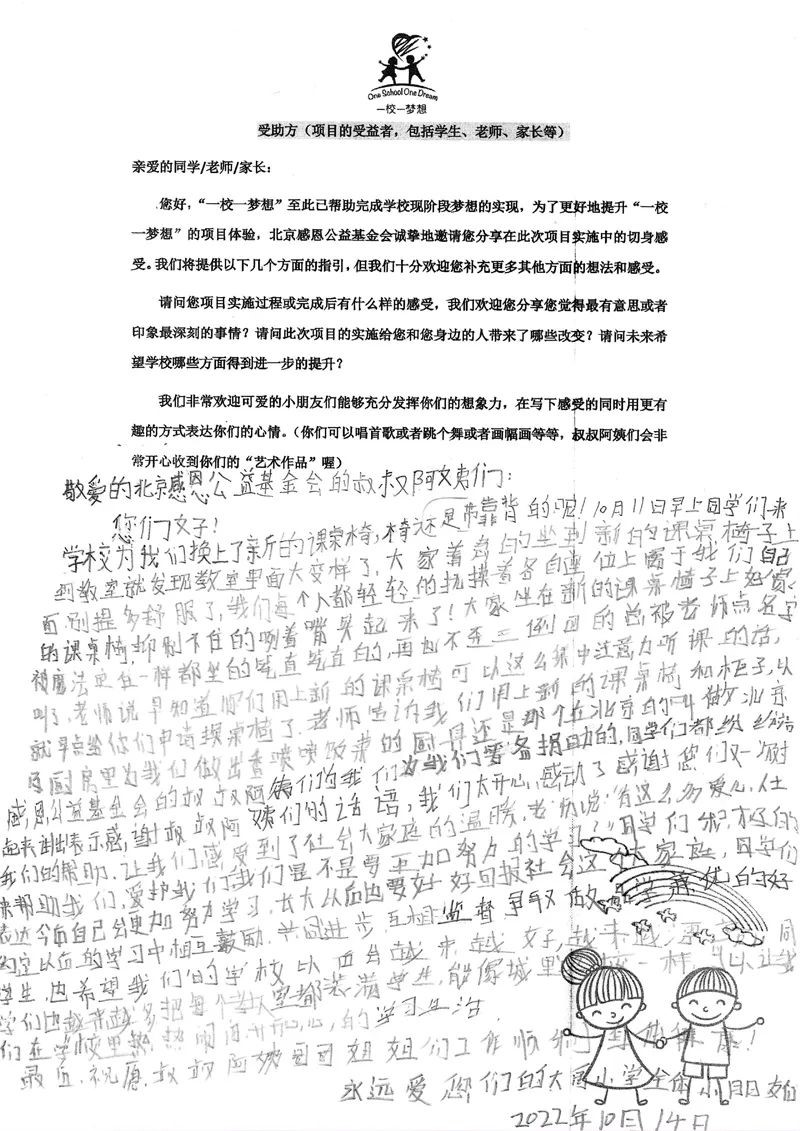 One School One Dream
一校一梦想
受助方（项目的受益者，包括学生、老师、家长等）
亲爱的同学/老师/家长：
您好，“一校一梦想”至此已帮助完成学校现阶段梦想的实现，为了更好地提升“一校
一梦想”的项目体验，北京感恩公益基金会诚挚地邀请您分享在此次项目实施中的切身感
受。我们将提供以下几个方面的指引，但我们十分欢迎您补充更多其他方面的想法和感受。
请问您项目实施过程或完成后有什么样的感受，我们欢迎您分享您觉得最有意思或者
印象最深刻的事情？请问此次项目的实施给您和您身边的人带来了哪些改变？请问未来希
望学校哪些方面得到进一步的提升？
我们非常欢迎可爱的小朋友们能够充分发挥你们的想象力，在写下感受的同时用更有
趣的方式表达你们的心情。（你们可以唱首歌或者跳个舞或者画幅画等等，叔叔阿姨们会非
常开心收到你们的“艺术作品”喔）
敬爱的北京感恩公益基金会的叔叔阿姨们：
您们好！
学校为我们换上了新的课桌椅，椅还是带靠背的呢！10月11日早上同学们一来
到教室就发现教室里面大变样了，大家着急的坐到新的课桌椅子上
面，别提多舒服了，我们每个人都轻轻的抚摸着各自座位上属于我们自己
的课桌椅，抑制不住的咧着嘴笑起来了！大家坐在新的课桌椅子上
被魔法 一样都坐的笔直笔直的，再也不歪三倒四的总被老师点名字
叫了，老师说早知道你们用上新的课桌椅可以这么集中注意力听课的话，
就早点给你们申请换桌椅了。老师告诉我们用上新的课桌椅和柜子，以
及厨房里为我们做出香喷喷饭菜的厨具还是那个在北京的叫做北京
感恩公益基金会的叔叔阿姨们为我们捐助的，同学们都纷纷站
起来 表示感谢叔叔阿姨们的话语，我们太开心，感动了感谢您们又一次对
我们的帮助，让我们感受到了社会大家庭的温暖，老师说：“有这么多爱心人士
来帮助我们，爱护我们我们是不是要更加努力的学习？”同学们
表达今后自己会更加努力学习，长大以后也要好好回报社会这 大家庭，同学们
约定以后的学习中相互鼓励，共同进步，互相监督争取做 的好
学生，也希望我们的学校以后会越来越好，越来越
学们也越来越多把每个教室都装满学生，能像城里 一样
们在学校里 热闹 开开心心的学习生活。
最后，祝愿叔叔阿姨哥哥姐姐们工作顺利 健康！
永远爱您们的 小学全体小朋友们
2022年10月14日